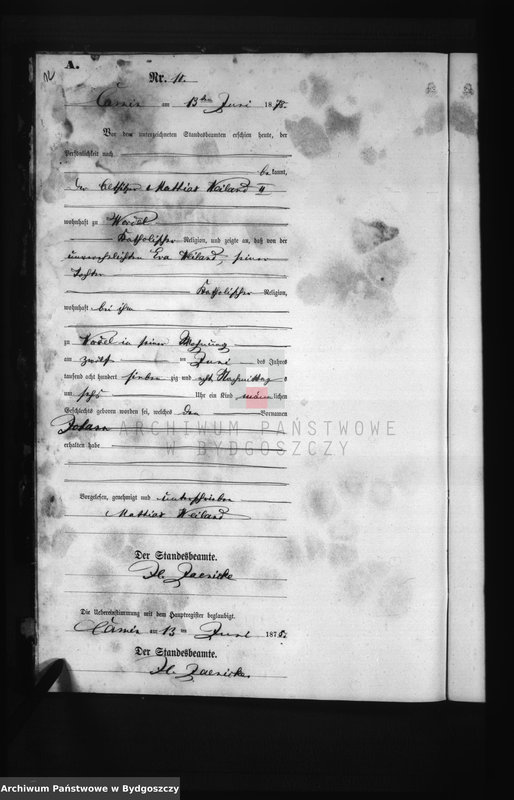 A.
Nr. 10.
Camin am 13ten Juni 1878.
Vor dem unterzeichneten Standesbeamten erschien heute, der
Persönlichkeit nach
bekannt,
der Besitzer Mathias Weiland II
wohnhaft zu
Katholischer Religion, und zeigte an, daß von der
unverehelichten Eva Weiland, seiner
Tochter
Katholischer Religion,
wohnhaft bei ihm
zu in seiner Wohnung
am zwölften Juni des Jahres
tausend acht hundert siebenzig und acht Nachmittag s
um sechs Uhr ein Kind männlichen
Geschlechts geboren worden sei, welches den Vornamen
Johann
erhalten habe
Vorgelesen, genehmigt und unterschrieben
Mathias Weiland
Der Standesbeamte.
Camin am 13 ten Juni 1878.
Die Uebereinstimmung mit dem Hauptregister beglaubigt.
Der Standesbeamte.
ARCHIWUM PAŃSTWOWE
W BYDGOSZCZY
Archiwum Państwowe w Bydgoszczy